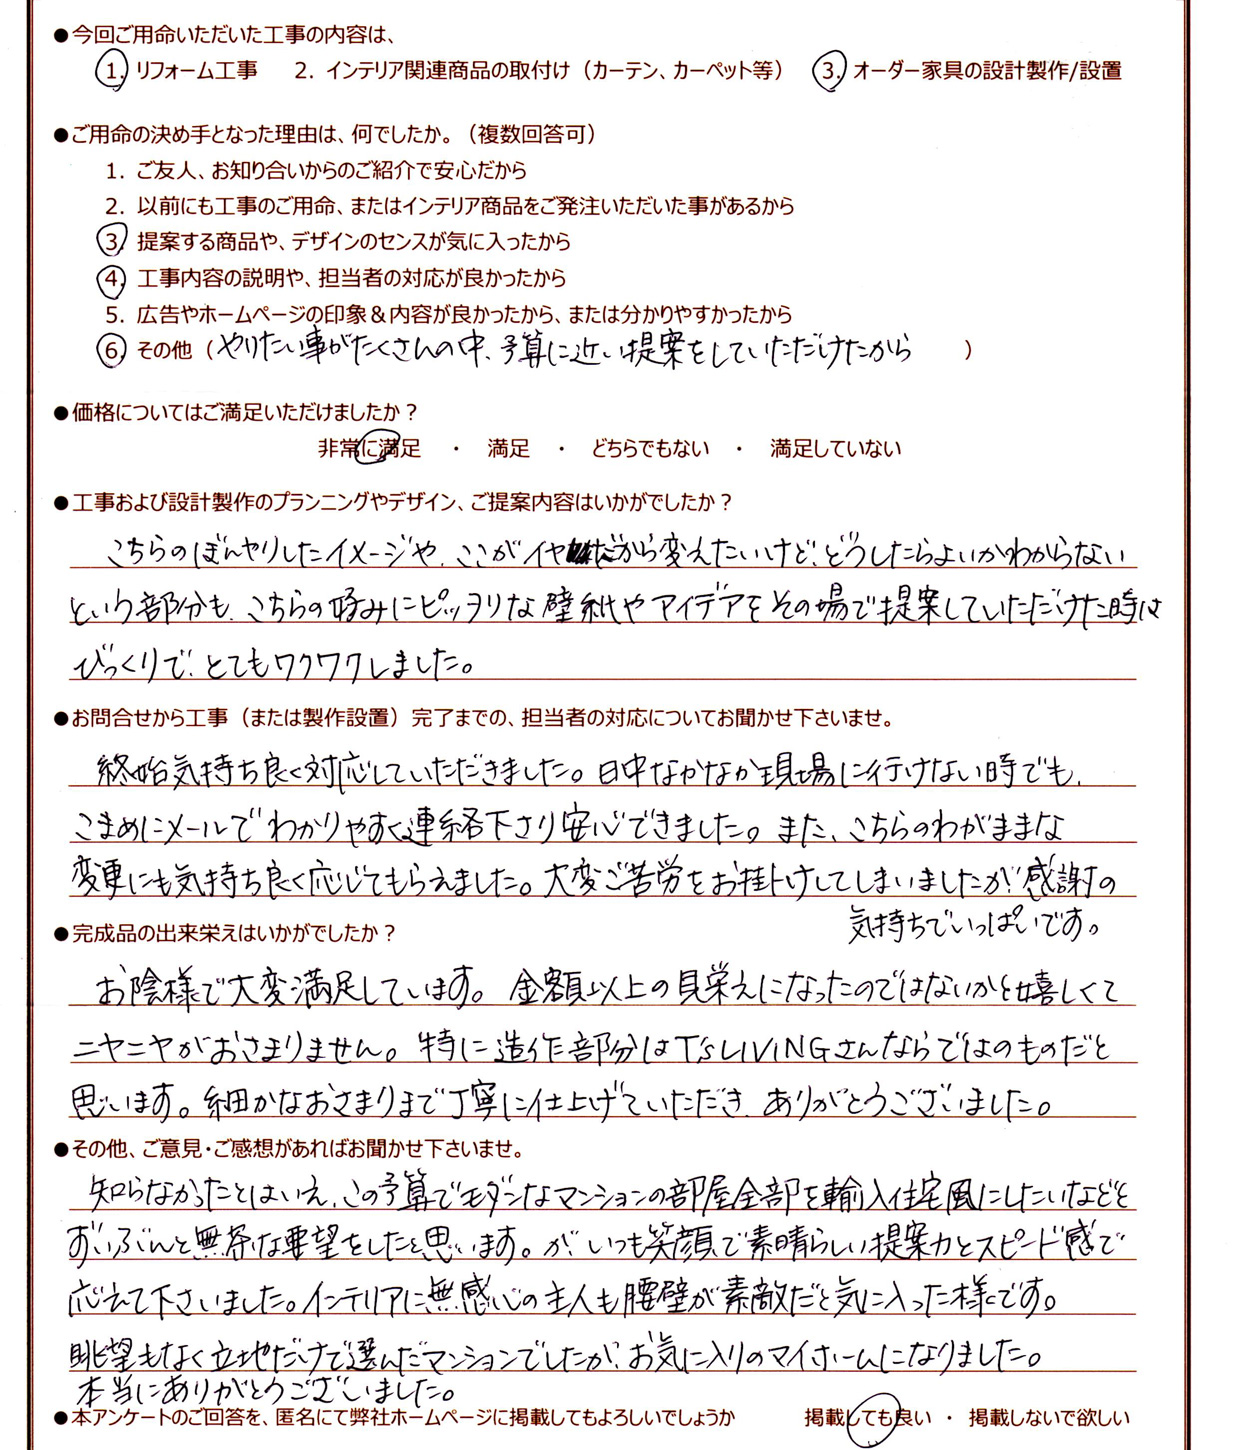 ●今回ご用命いただいた工事の内容は、
1. リフォーム工事 2. インテリア関連商品の取付け（カーテン、カーペット等） 3. オーダー家具の設計製作/設置
●ご用命の決め手となった理由は、何でしたか。（複数回答可）
1. ご友人、お知り合いからのご紹介で安心だから
2. 以前にも工事のご用命、またはインテリア商品をご発注いただいた事があるから
3. 提案する商品や、デザインのセンスが気に入ったから
4. 工事内容の説明や、担当者の対応が良かったから
5. 広告やホームページの印象＆内容が良かったから、または分かりやすかったから
6. その他（やりたい事がたくさんの中、予算に近い提案をしていただけたから ）
●価格についてはご満足いただけましたか？
非常に満足 ・ 満足 ・ どちらでもない ・ 満足していない
●工事および設計製作のプランニングやデザイン、ご提案内容はいかがでしたか？
こちらのぼんやりしたイメージや、ここがイヤだから変えたいけど、どうしたらよいかわからない
という部分も、こちらの好みにピッタリな壁紙やアイデアをその場で提案していただけた時は
びっくりで、とてもワクワクしました。
●お問合せから工事（または製作設置）完了までの、担当者の対応についてお聞かせ下さいませ。
終始気持ち良く対応していただきました。日中なかなか現場に行けない時でも、
こまめにメールでわかりやすく連絡下さり安心できました。また、こちらのわがままな
変更にも気持ち良く応じてもらえました。大変ご苦労をお掛けしてしまいましたが、感謝の
気持ちでいっぱいです。
●完成品の出来栄えはいかがでしたか？
お陰様で大変満足しています。金額以上の見栄えになったのではないかと嬉しくて
ニヤニヤがおさまりません。特に造作部分はT'sLIVINGさんならではのものだと
思います。細かなおさまりまで丁寧に仕上げていただき、ありがとうございました。
●その他、ご意見・ご感想があればお聞かせ下さいませ。
知らなかったとはいえ、この予算でモダンなマンションの部屋全部を輸入住宅風にしたいなどと
ずいぶんと無茶な要望をしたと思います。が、いつも笑顔で素晴らしい提案力とスピード感で
応えて下さいました。インテリアに無感心の主人も腰壁が素敵だと気に入った様です。
眺望もなく立地だけで選んだマンションでしたが、お気に入りのマイホームになりました。
本当にありがとうございました。
●本アンケートのご回答を、匿名にて弊社ホームページに掲載してもよろしいでしょうか 掲載しても良い ・ 掲載しないで欲しい